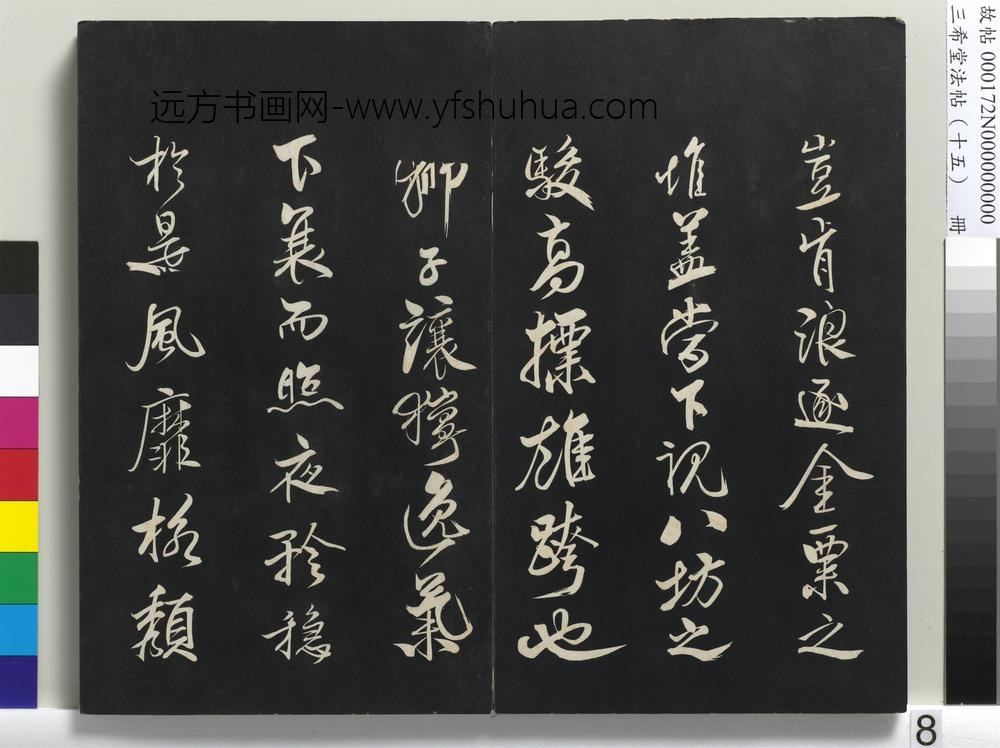 豈肯浪逐金粟之
堆盖嘗下視八坊之
駿高摽雄跨也
獅子讓獰逸氣
下衰而照夜矜穩
於是風靡格頹
远方书画网-www.yfshuhua.com
故帖 000172N000000000
三希堂法帖（十五） 冊
8